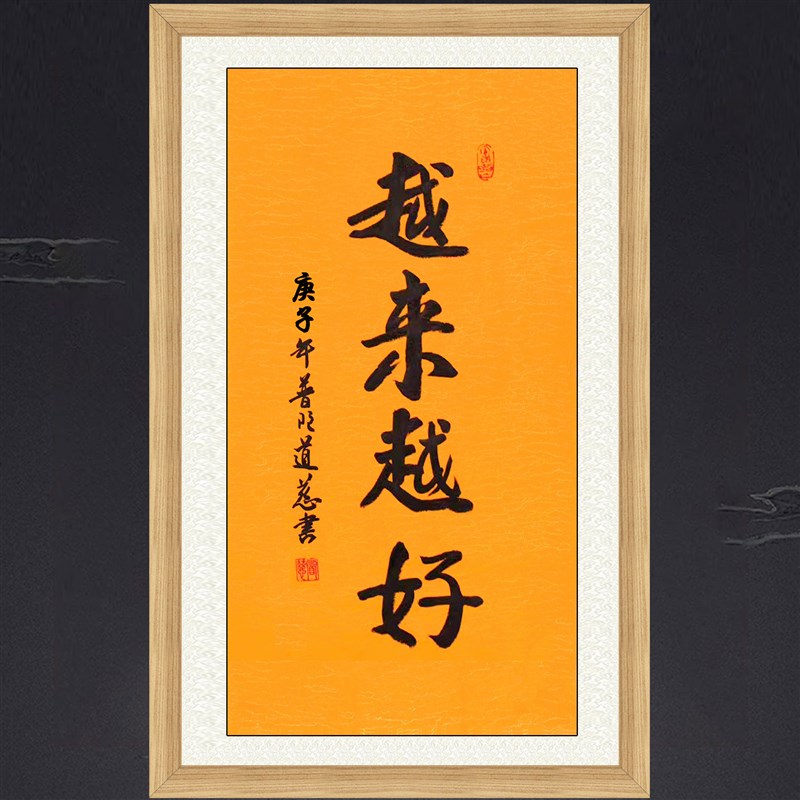 越来越好
庚子年普明道慈書